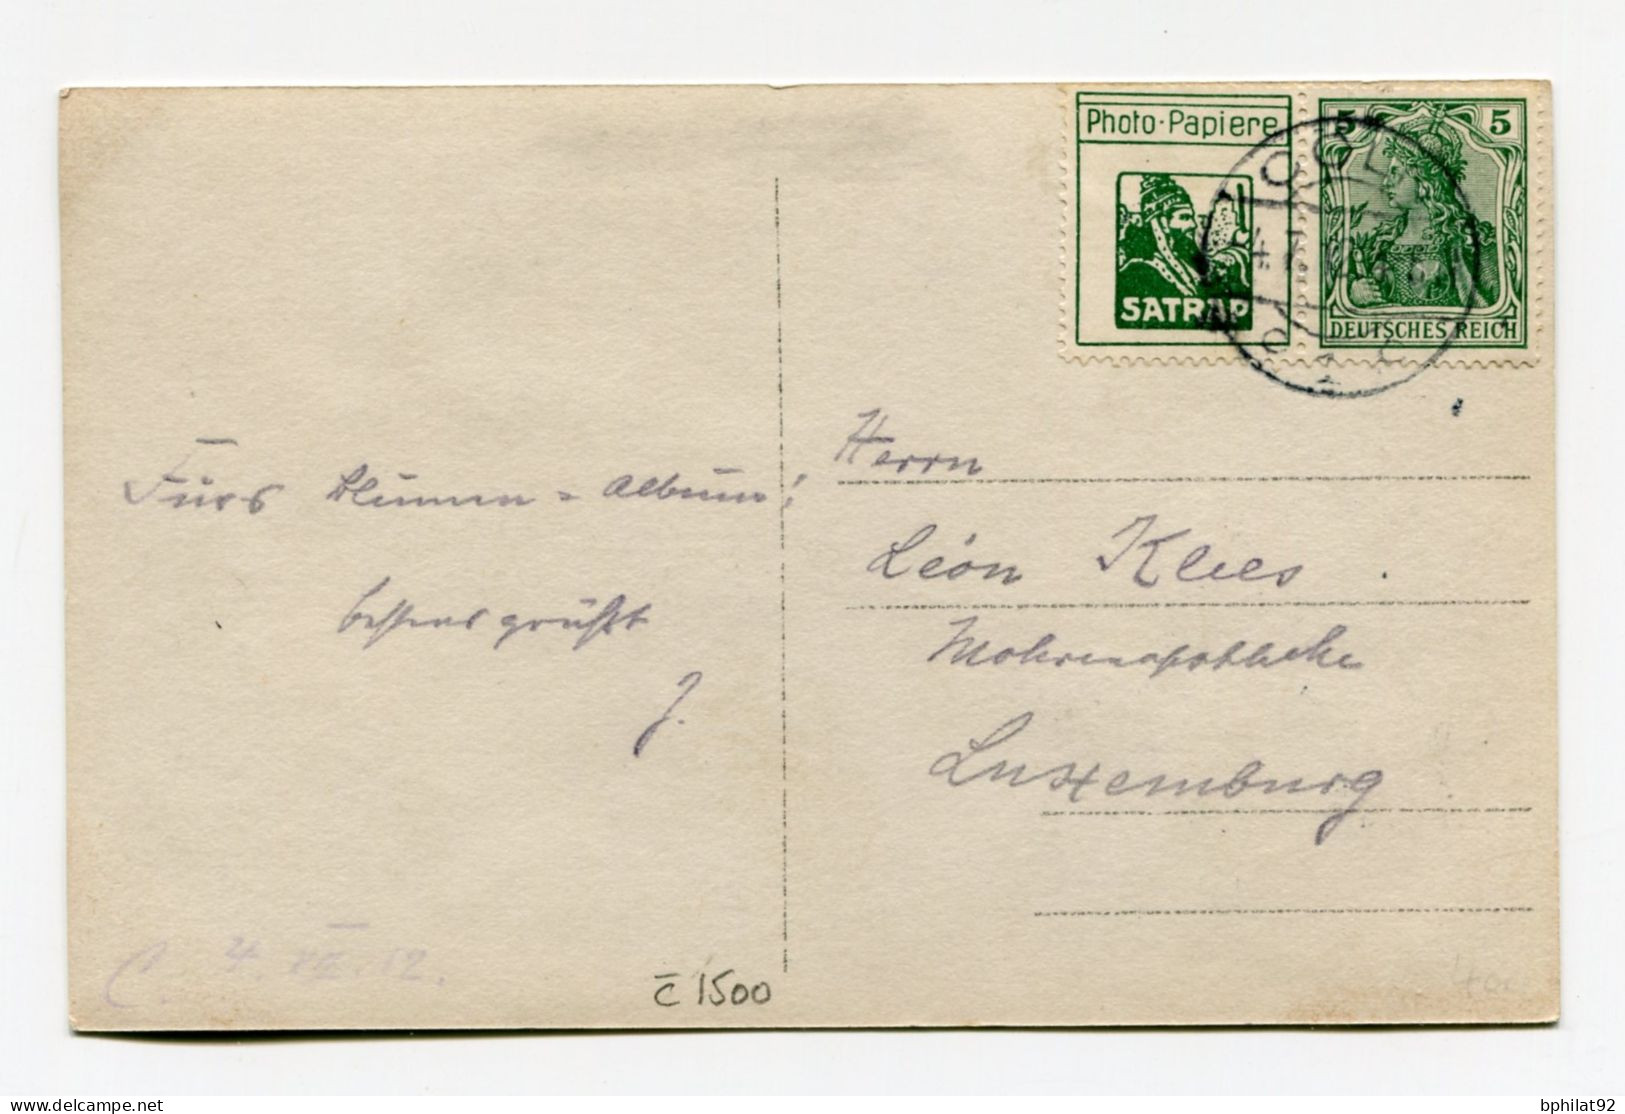 Photo·Papiere
SATRAP
5 5
DEUTSCHES REICH
Fürs Blumen=Album!
bestens grüßt
J.
C. 4. VII. 12.
Herrn
Léon Klees.
Mohrenapotheke
Luxemburg
c 1500
delcampe.net
bphilat92